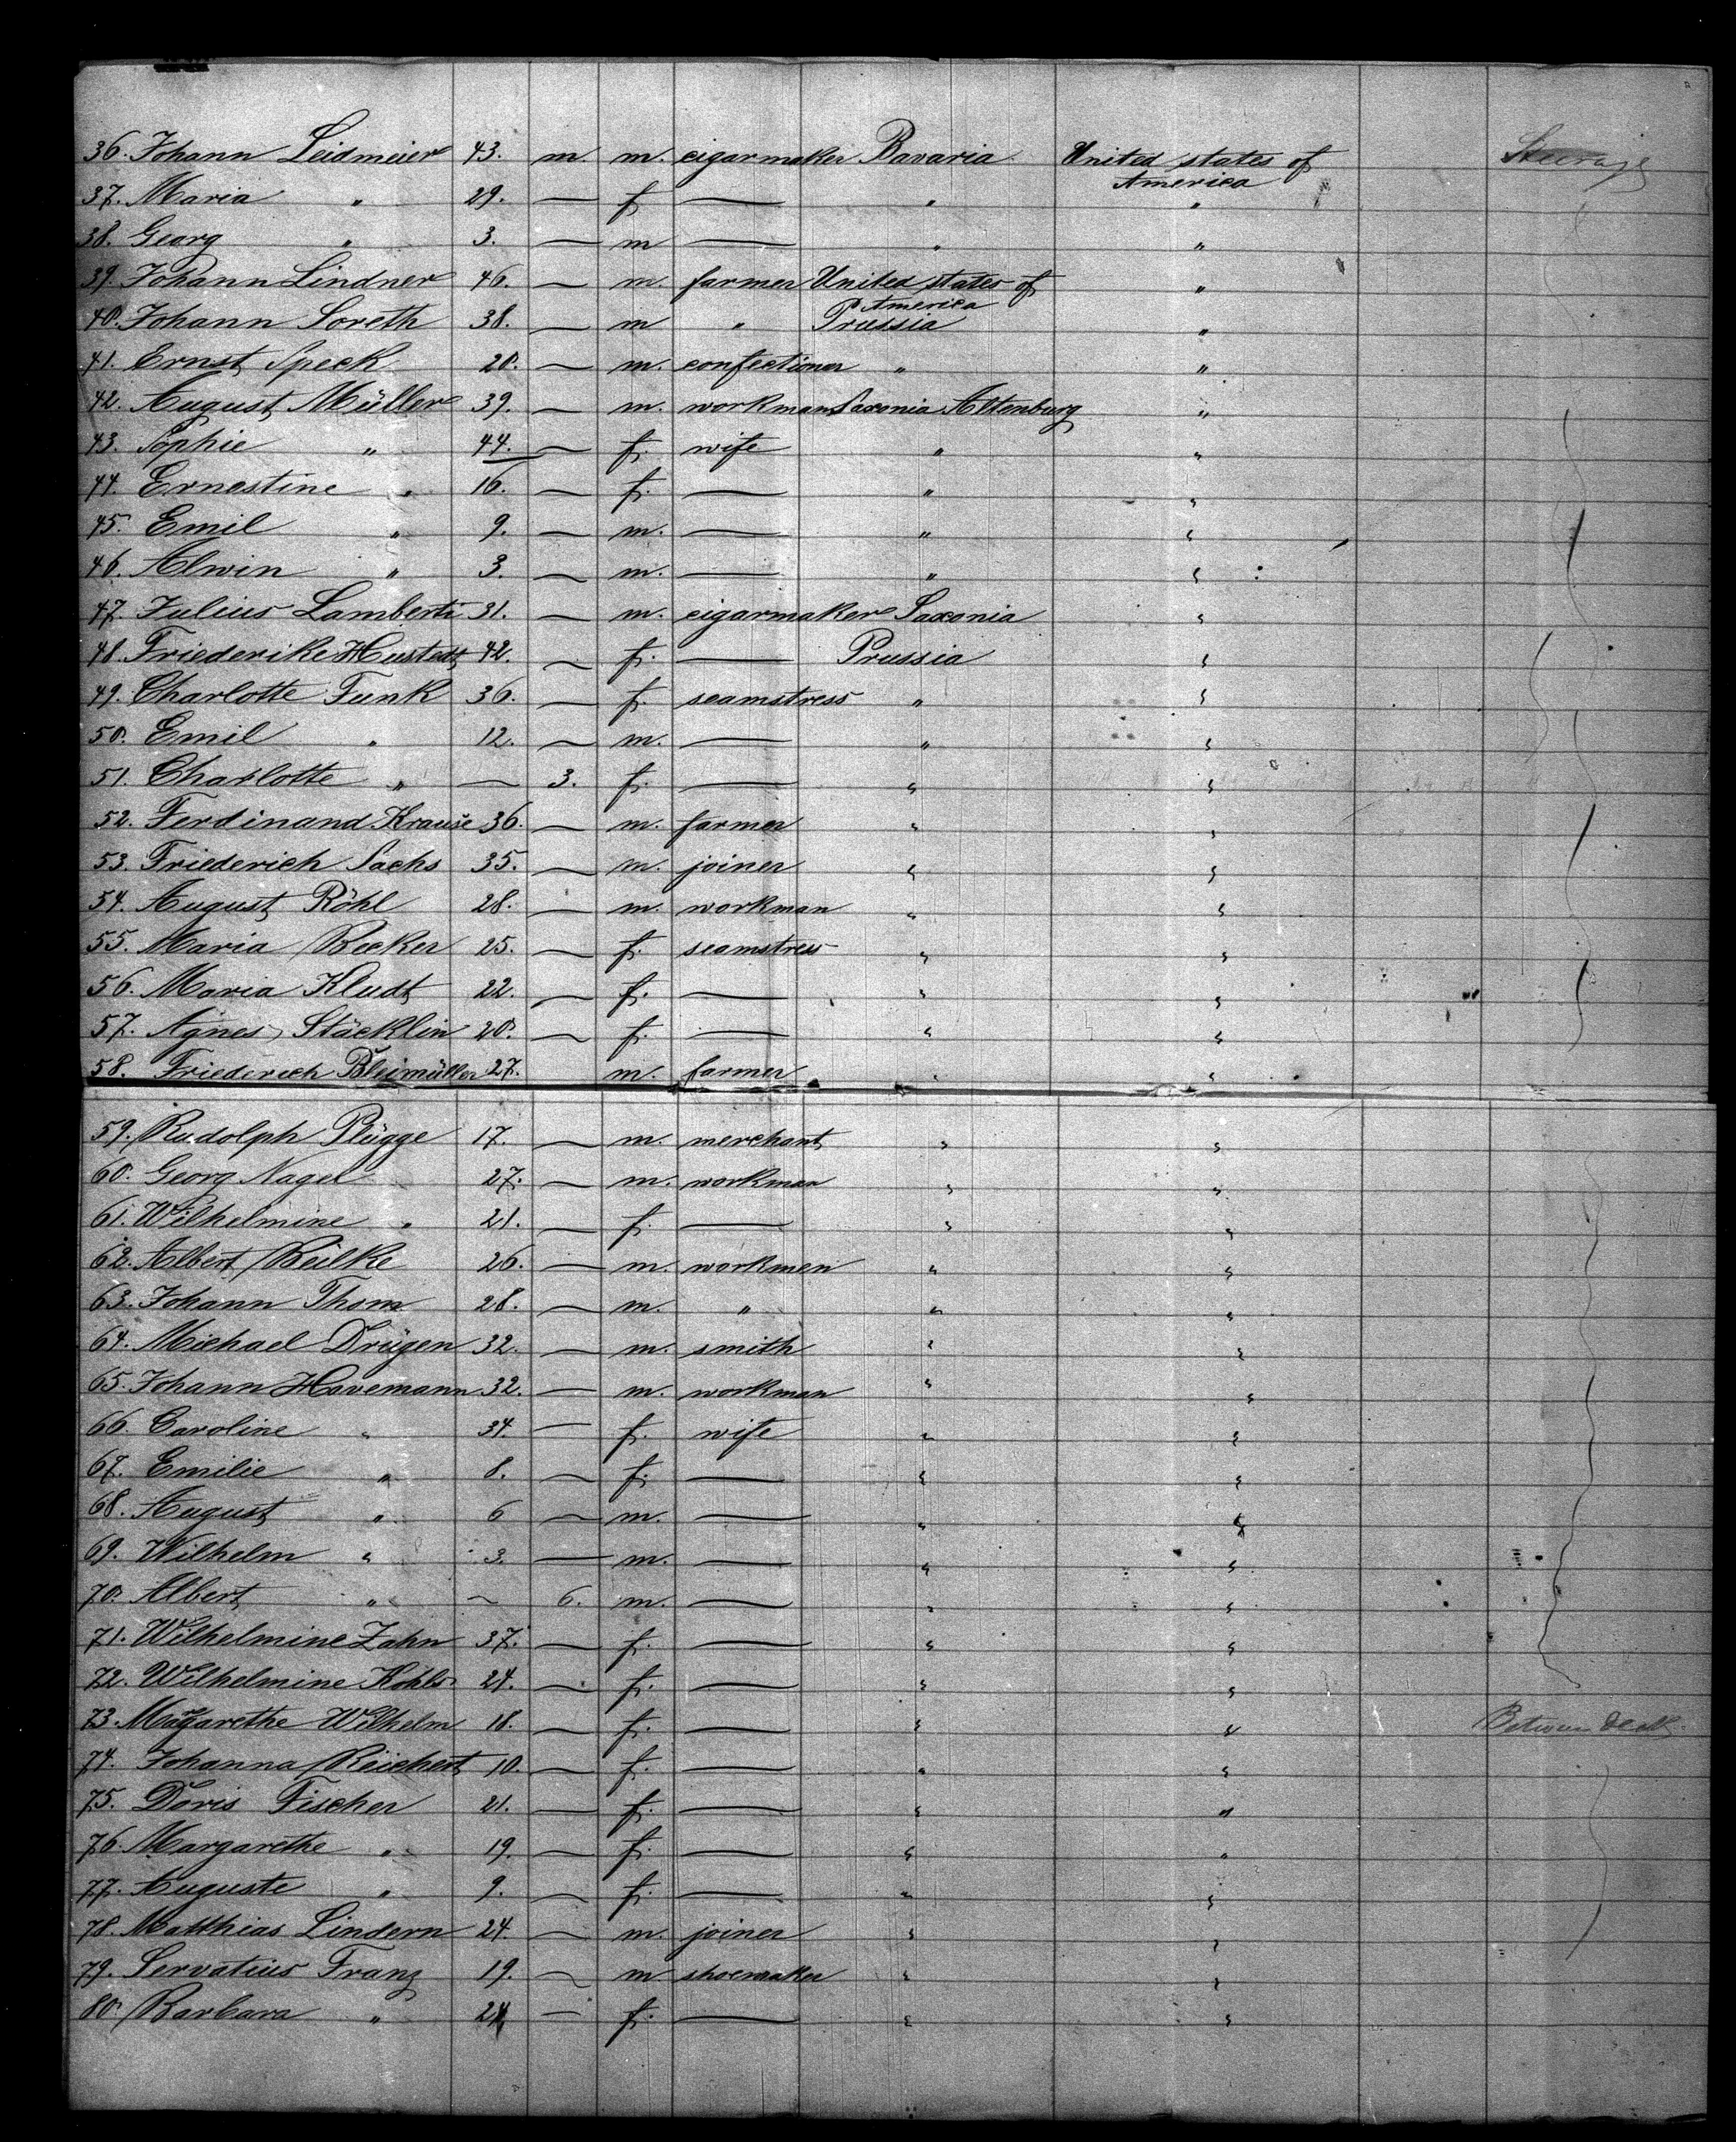 36. Johann Leidmeier 43. m. m. cigarmaker Bavaria United states of America Steerage
37. Maria " 29. — f. — " "
38. Georg " 3. — m — " "
39. Johann Lindner 46. — m. farmer United states of America "
40. Johann Soreth 38. — m " Prussia "
41. Ernst Speck 20. — m. confectioner " "
42. August Müller 39. — m. workman Saxonia Altenburg "
43. Sophie " 44. — f. wife " "
44. Ernestine " 16. — f. — " "
45. Emil " 9. — m. — " "
46. Alwin " 3. — m. — " "
47. Julius Lamberti 31. — m. cigarmaker Saxonia "
48. Friederike Hustedt 42. — f. — Prussia "
49. Charlotte Funk 36. — f. seamstress " "
50. Emil " 12. — m. — " "
51. Charlotte " — 3. f. — " "
52. Ferdinand Krause 36. — m. farmer " "
53. Friederich Sachs 35. — m. joiner " "
54. August Röhl 28. — m. workman " "
55. Maria Becker 25. — f. seamstress " "
56. Maria Kludt 22. — f. — " "
57. Agnes Stäcklin 20. — f. — " "
58. Friederich Bleimüller 27. m. farmer " "
59. Rudolph Plügge 17. — m. merchant " "
60. Georg Nagel 27. — m. workman " "
61. Wilhelmine " 21. — f. — " "
62. Albert Beilke 26. — m. workmen " "
63. Johann Thom 28. — m. " " "
64. Michael Drügen 32. — m. smith " "
65. Johann Havemann 32. — m. workman " "
66. Caroline " 34. — f. wife " "
67. Emilie " 8. — f. — " "
68. August " 6 — m. — " "
69. Wilhelm " 3. — m. — " "
70. Albert " — 6. m. — " "
71. Wilhelmine Zahn 37. — f. — " "
72. Wilhelmine Kohls 24. — f. — " "
73. Magarethe Wilhelm 18. — f. — " " Between deck.
74. Johanna Reichert 10. — f. — " "
75. Doris Fischer 21. — f. — " "
76. Margarethe " 19. — f. — " "
77. Auguste " 9. — f. — " "
78. Matthias Lindern 24. — m. joiner " "
79. Servatius Franz 19. — m shoemaker " "
80. Barbara " 24 — f. — " "